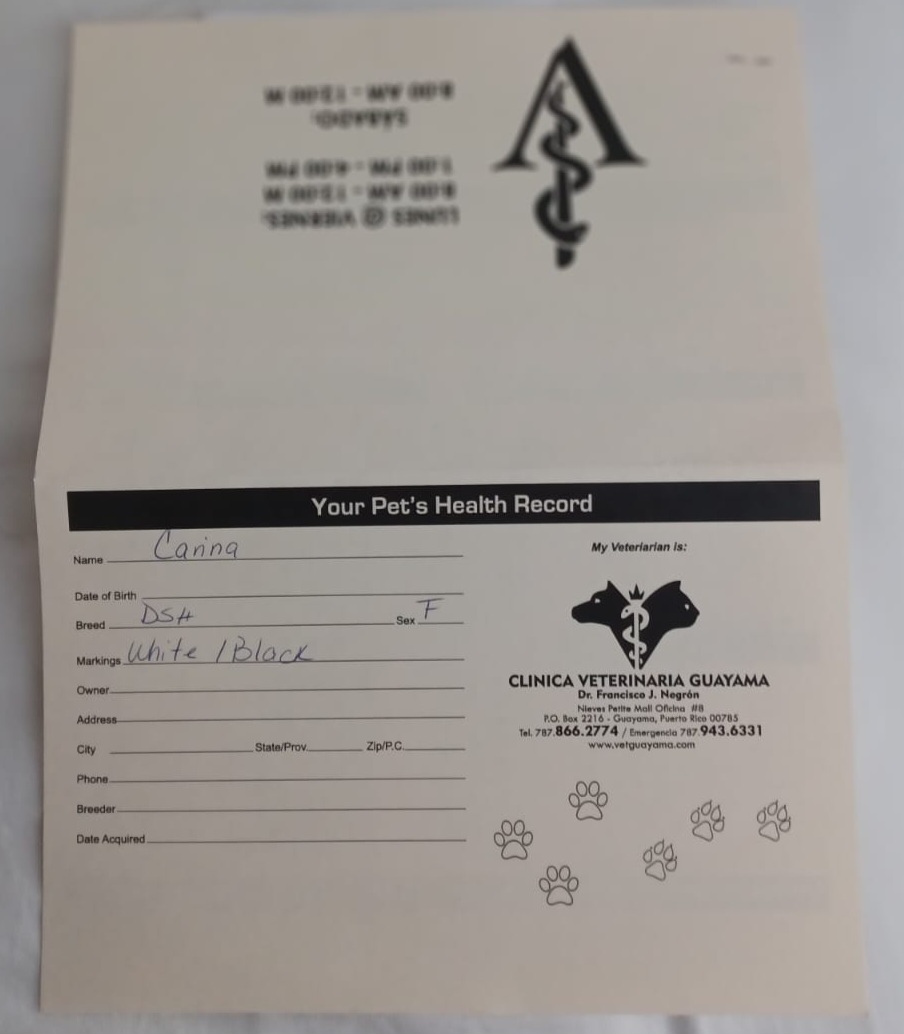 LUNES @ VIERNES:
8:00 AM - 12:00 M
1:00 PM - 4:00 PM
SABADO:
8:00 AM - 12:00 M
Your Pet's Health Record
Name Carina
Date of Birth
Breed DSH Sex F
Markings White / Black
Owner
Address
City State/Prov. Zip/P.C.
Phone
Breeder
Date Acquired
My Veteriarian is:
CLINICA VETERINARIA GUAYAMA
Dr. Francisco J. Negrón
Nieves Petite Mall Oficina #8
P.O. Box 2216 - Guayama, Puerto Rico 00785
Tel. 787.866.2774 / Emergencia 787.943.6331
www.vetguayama.com